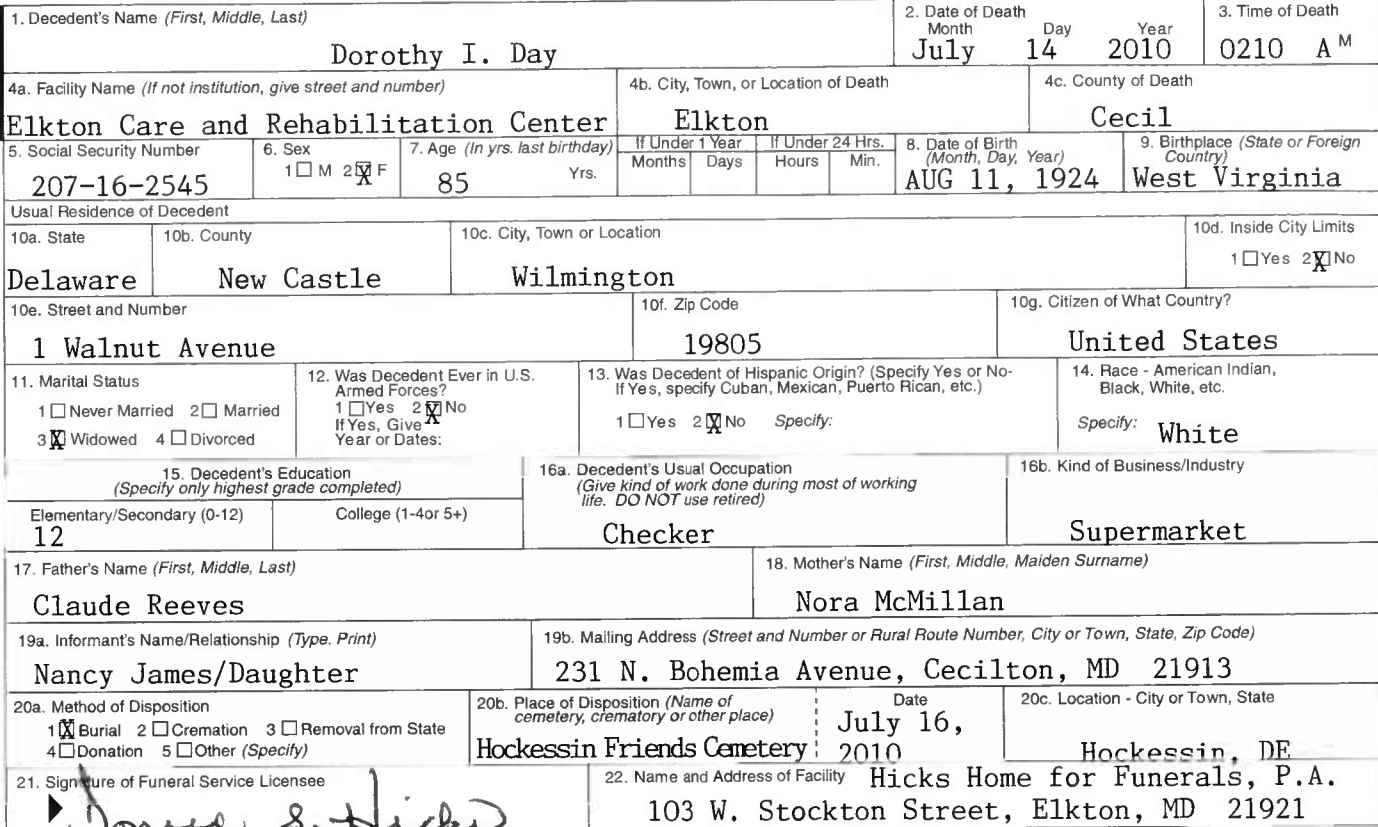 1. Decedent's Name (First, Middle, Last)
Dorothy I. Day
2. Date of Death
Month Day Year
July 14 2010
3. Time of Death
0210 A M
4a. Facility Name (If not institution, give street and number)
Elkton Care and Rehabilitation Center
4b. City, Town, or Location of Death
Elkton
4c. County of Death
Cecil
5. Social Security Number
207-16-2545
6. Sex
1 ☐ M 2 ☒ F
7. Age (In yrs. last birthday)
85 Yrs.
If Under 1 Year
Months Days
If Under 24 Hrs.
Hours Min.
8. Date of Birth
(Month, Day, Year)
AUG 11, 1924
9. Birthplace (State or Foreign
Country)
West Virginia
Usual Residence of Decedent
10a. State
Delaware
10b. County
New Castle
10c. City, Town or Location
Wilmington
10d. Inside City Limits
1 ☐ Yes 2 ☒ No
10e. Street and Number
1 Walnut Avenue
10f. Zip Code
19805
10g. Citizen of What Country?
United States
11. Marital Status
1 ☐ Never Married 2 ☐ Married
3 ☒ Widowed 4 ☐ Divorced
12. Was Decedent Ever in U.S.
Armed Forces?
1 ☐ Yes 2 ☒ No
If Yes, Give
Year or Dates:
13. Was Decedent of Hispanic Origin? (Specify Yes or No-
If Yes, specify Cuban, Mexican, Puerto Rican, etc.)
1 ☐ Yes 2 ☒ No Specify:
14. Race - American Indian,
Black, White, etc.
Specify: White
15. Decedent's Education
(Specify only highest grade completed)
Elementary/Secondary (0-12)
12
College (1-4or 5+)
16a. Decedent's Usual Occupation
(Give kind of work done during most of working
life. DO NOT use retired)
Checker
16b. Kind of Business/Industry
Supermarket
17. Father's Name (First, Middle, Last)
Claude Reeves
18. Mother's Name (First, Middle, Maiden Surname)
Nora McMillan
19a. Informant's Name/Relationship (Type. Print)
Nancy James/Daughter
19b. Mailing Address (Street and Number or Rural Route Number, City or Town, State, Zip Code)
231 N. Bohemia Avenue, Cecilton, MD 21913
20a. Method of Disposition
1 ☒ Burial 2 ☐ Cremation 3 ☐ Removal from State
4 ☐ Donation 5 ☐ Other (Specify)
20b. Place of Disposition (Name of
cemetery, crematory or other place)
Hockessin Friends Cemetery
Date
July 16,
2010
20c. Location - City or Town, State
Hockessin, DE
21. Signature of Funeral Service Licensee
S. Hicks
22. Name and Address of Facility Hicks Home for Funerals, P.A.
103 W. Stockton Street, Elkton, MD 21921